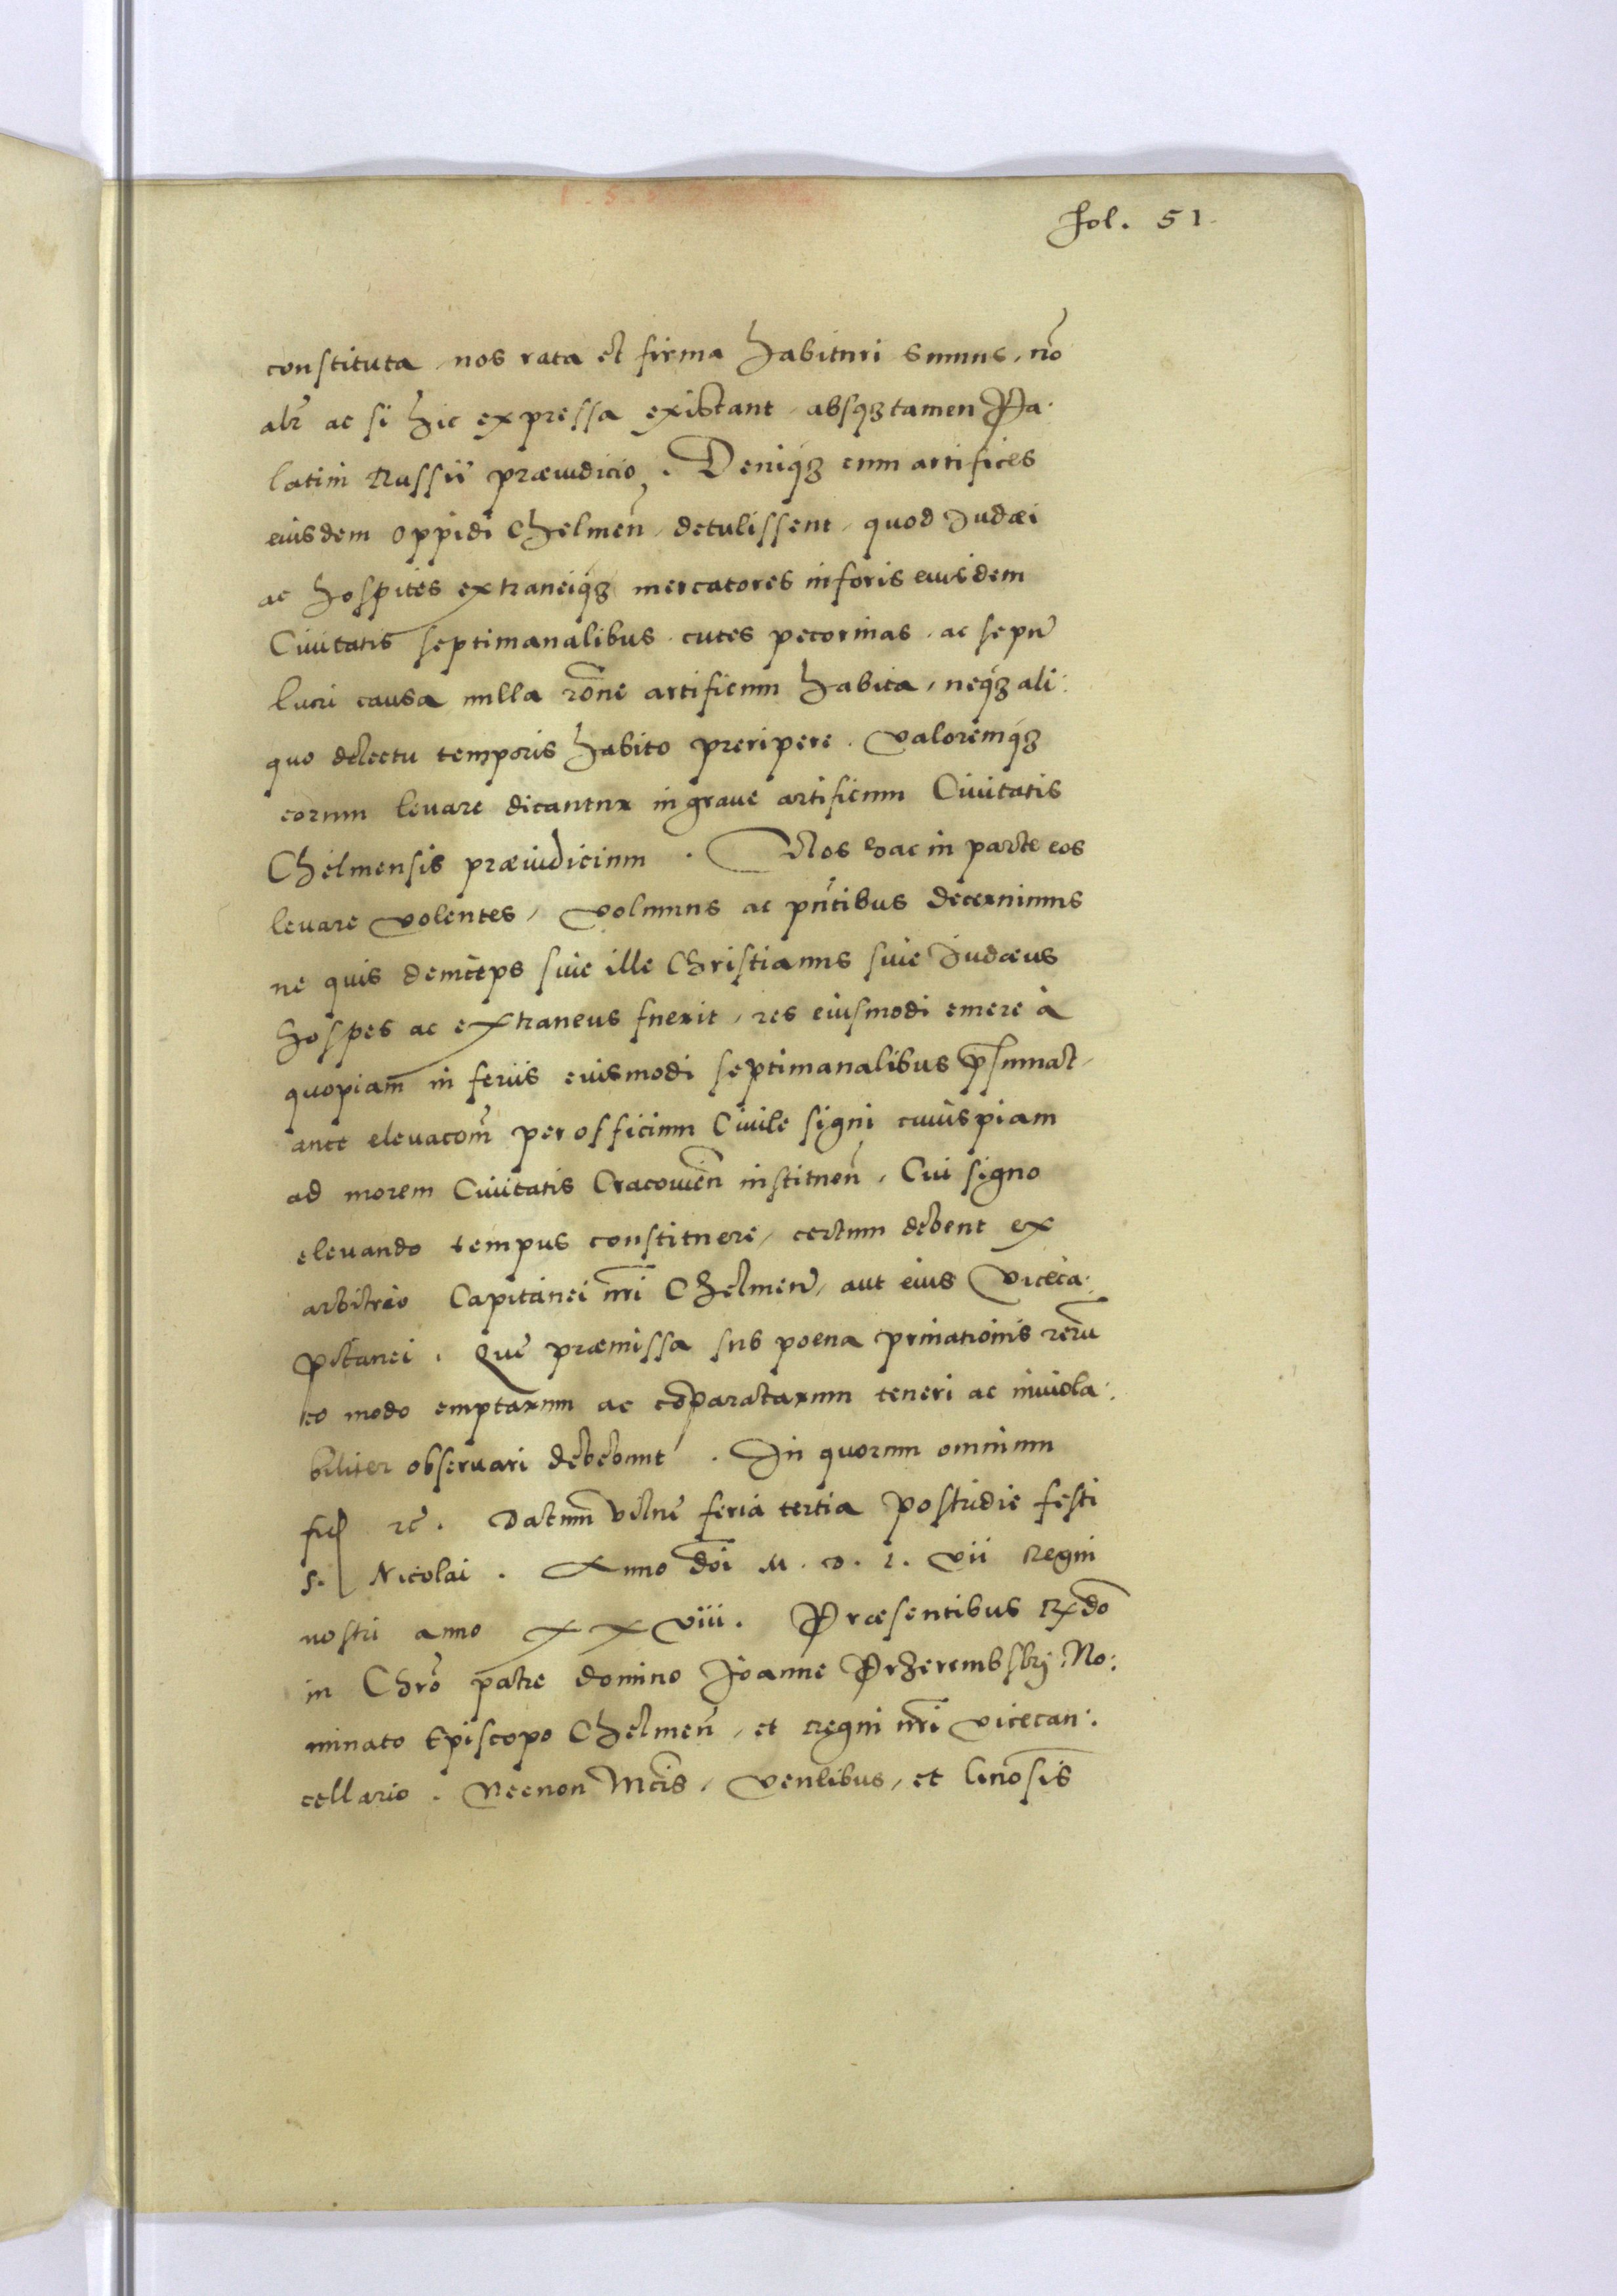 fol. 51
constituta, nos rata et firma habituri sumus, nō
alr̄ ac si hic expressa existant, absq3 tamen Pa:
latini Russiȩ præiudicio. Deniq3 cum artifices
eiusdem oppidi Chelmen̄, detulissent, quod Judæi
ac hospites extraneiq3 mercatores in foris eiusdem
Ciuitatis septimanalibus cutes pecorinas, ac sepū
lucri causa nulla rōne artificum habita, neq3 ali:
quo delectu temporis habito preripere. Valoremq3
eorum leuare dicantur in graue artificum Ciuitatis
Chelmensis præiudicium. Nos hac in parte eos
leuare volentes, volumus ac pn̄tibus decernimus
ne quis deinceps siue ille Christianus siue Judæus
hospes ac extraneus fuerit, res eiusmodi emere à
quopiam̄ in feriis eiusmodi septimanalibus p̄sumat,
ante eleuacom̄ per officium Ciuile signi cuiuspiam
ad morem Ciuitatis Cracouien̄ instituen̄, Cui signo
eleuando tempus constituere, certum debent ex
arbitrio Capitanei nr̄i Chelmen̄, aut eius Viceca:
pitanei. Quȩ præmissa sub poena priuationis rerū
eo modo emptarum ac cōparatarum teneri ac inuiola:
biliter obseruari debebunt. In quorum omnium
fid rc̄. Datum̄ Vilnȩ feria tertia postridie festi
S. Nicolai. Anno dn̄i M. D. L. vii Regni
nostri anno xxviii. Præsentibus Rx̄do
in Chrō patre domino Joanne Przerembskij No:
minato Episcopo Chelmen̄, et regni nr̄i vicecan:
cellario. Necnon Mcis̄, Venlibus, et Gnosis̄